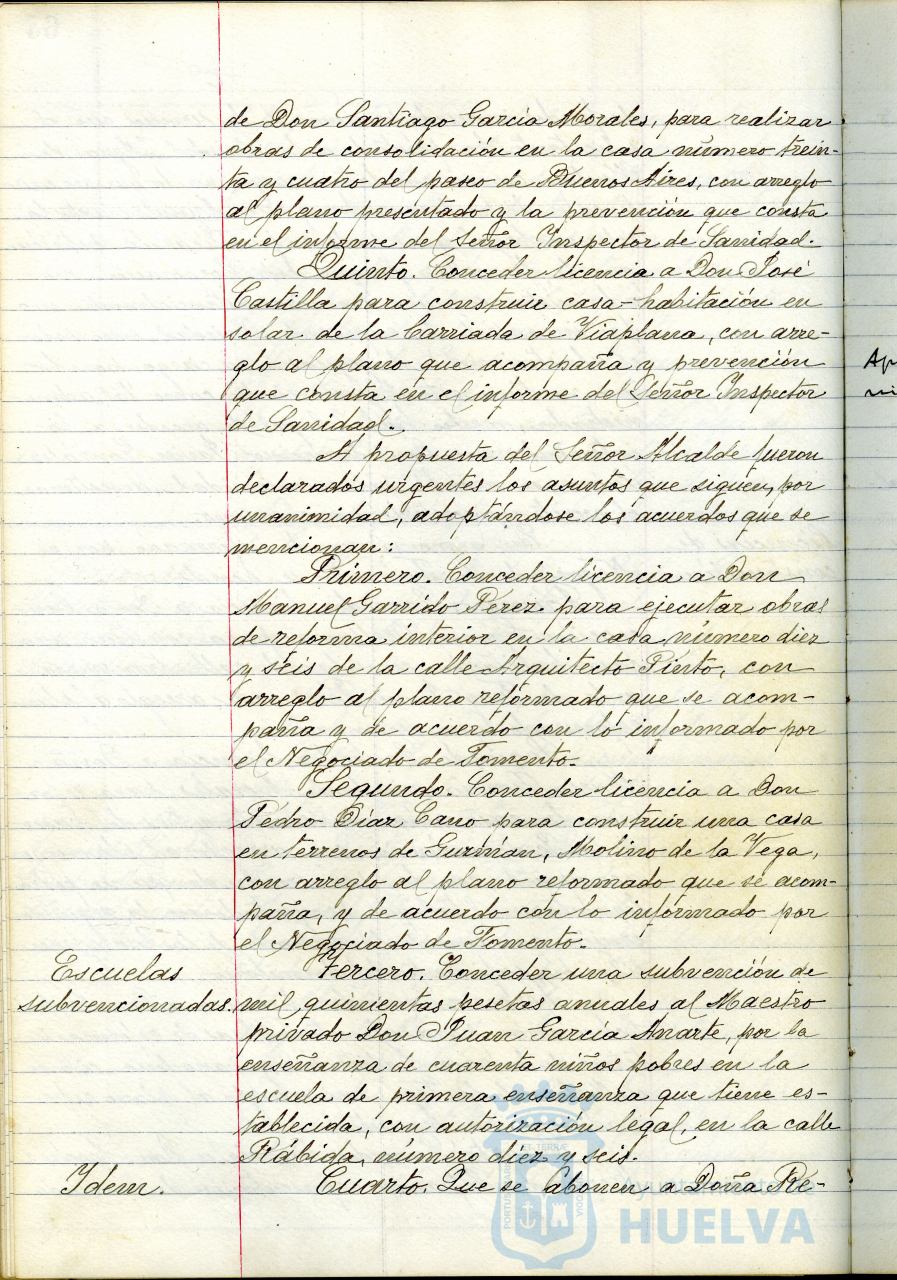 de Don Santiago García Morales, para realizar
obras de consolidación en la casa número trein-
ta y cuatro del paseo de Buenos Aires, con arreglo
al plano presentado y la prevención que consta
en el informe del Señor Inspector de Sanidad.
Quinto. Conceder licencia a Don José
Castilla para construir casa-habitación en
solar de la Barriada de Viaplana, con arre-
glo al plano que acompaña y prevención
que consta en el informe del Señor Inspector
de Sanidad.
A propuesta del Señor Alcalde fueron
declarados urgentes los asuntos que siguen, por
unanimidad, adoptándose los acuerdos que se
mencionan:
Primero. Conceder licencia a Don
Manuel Garrido Pérez para ejecutar obras
de reforma interior en la casa número diez
y séis de la calle Arquitecto Pinto, con
arreglo al plano reformado que se acom-
paña y de acuerdo con lo informado por
el Negociado de Fomento.
Segundo. Conceder licencia a Don
Pedro Díaz Cano para construir una casa
en terrenos de Guzmán, Molino de la Vega,
con arreglo al plano reformado que se acom-
paña, y de acuerdo con lo informado por
el Negociado de Fomento.
Escuelas
subvencionadas.
Tercero. Conceder una subvención de
mil quinientas pesetas anuales al Maestro
privado Don Juan García Anarte, por la
enseñanza de cuarenta niños pobres en la
escuela de primera enseñanza que tiene es-
tablecida, con autorización legal, en la calle
Rábida, número diez y seis.
Idem.
Cuarto. Que se abonen a Doña Re-
HUELVA